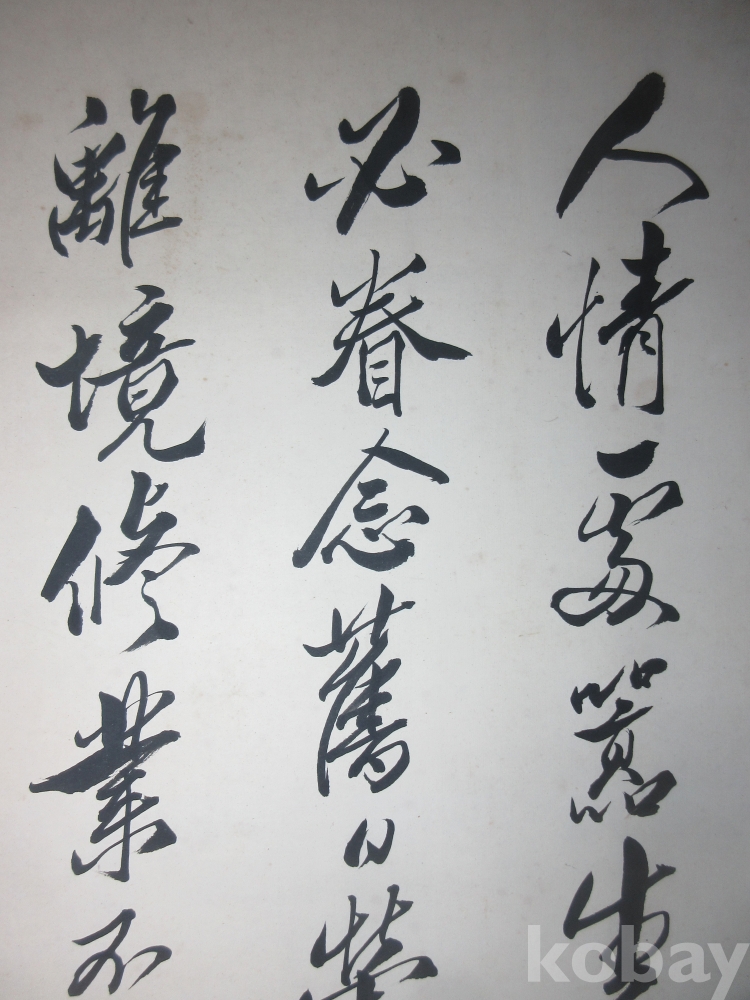 人情一處囂生
必眷念舊日
離境修業不
kobay